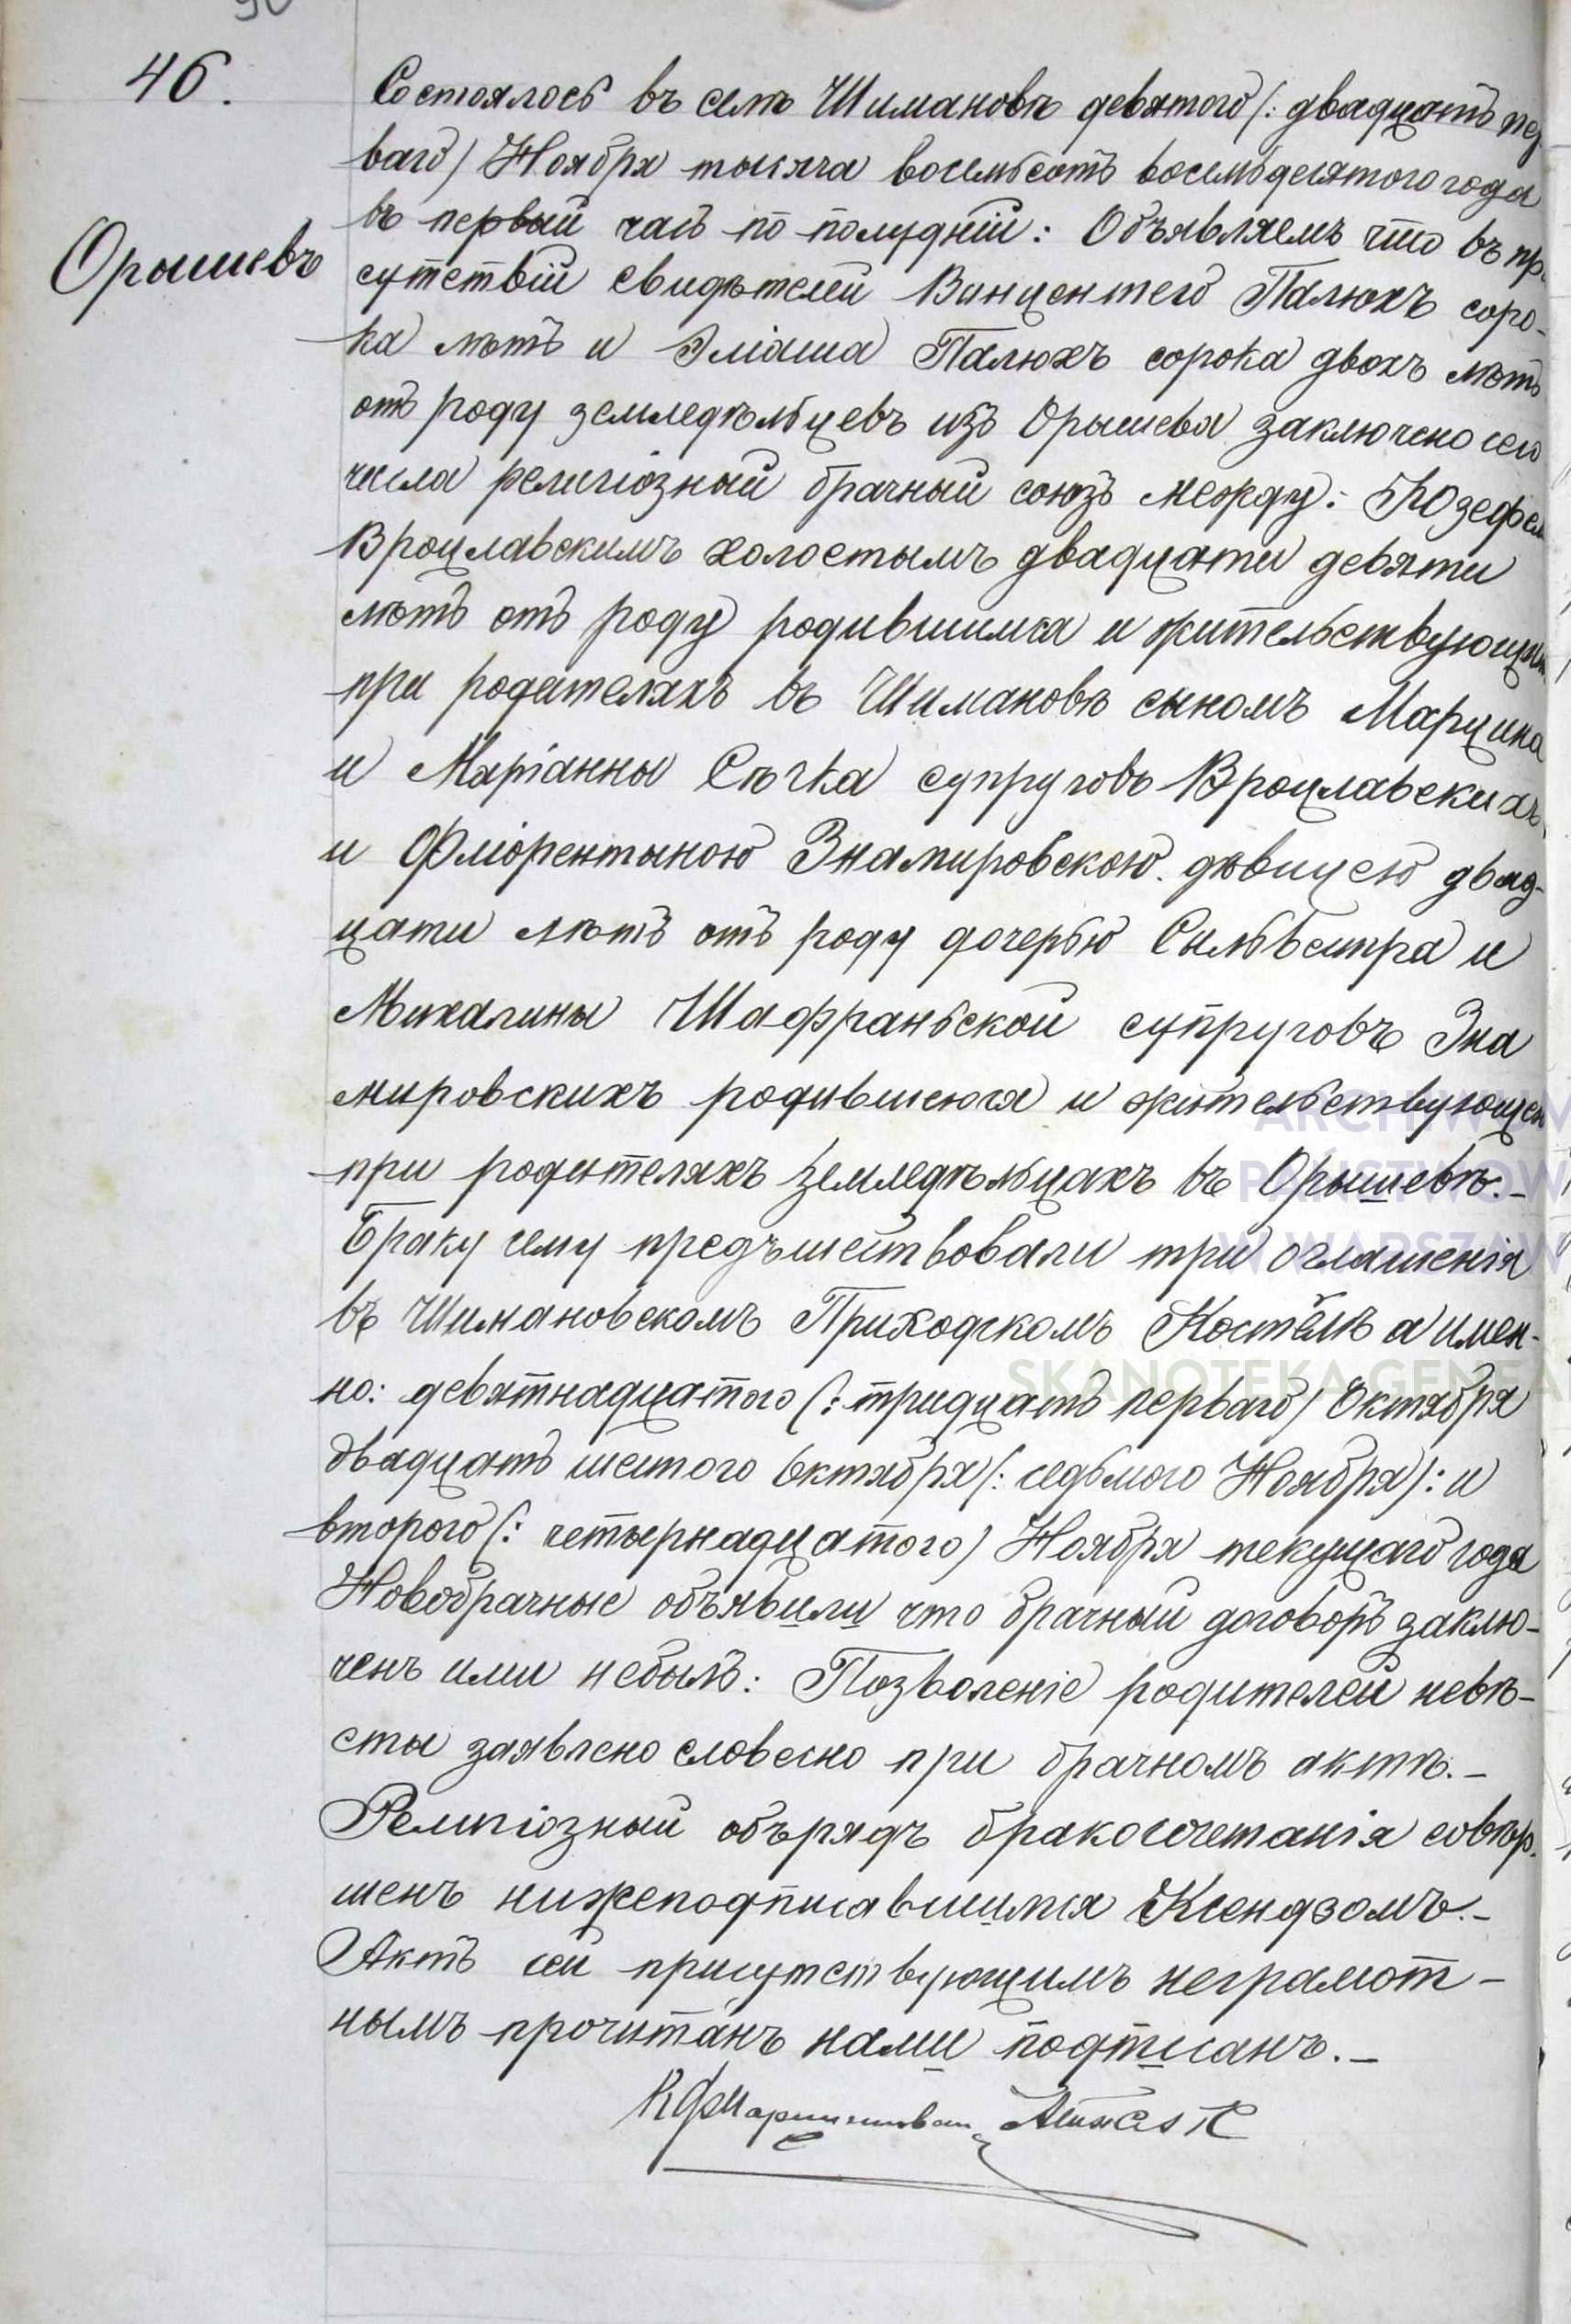 46.
Состоялось въ селѣ Шимановѣ девятого (: двадцать пер-
ваго) Ноября тысяча восемьсотъ восемьдесятого года
въ первый часъ по полудній: Объявляемъ что въ при
Орышевъ
сутствіи свидѣтелей Винцентего Палюхъ соро-
ка лѣтъ и Эліаша Палюхъ сорока двохъ лѣтъ
отъ роду земледѣльцевъ изъ Орышева заключено сего
числа религіозный брачный союзъ между: Юзефем
Вроцлавскимъ холостымъ двадцати девяти
лѣтъ отъ роду родившимся и жительствующим
при родителяхъ въ Шимановѣ сыномъ Марцина
и Маріанны Сѣчка супруговъ Вроцлавскихъ,
и Флорентыною Знамировскою дѣвицею двад-
цати лѣтъ отъ роду дочерью Сильвестра и
Михалины Шафраньской супруговъ Зна
мировскихъ родившеюся и жительствующею
при родителяхъ земледѣльцахъ въ Орышевѣ.-
Браку сему предъшествовали три оглашенія
въ Шимановскомъ Приходскомъ Костёлѣ а имен-
но: девятнадцатого (: тридцать перваго) Октября
двадцать шестого Октября (: седьмого Ноября): и
второго (: четырнадцатого) Ноября текущаго года
Новобрачные объявили что брачный договоръ заклю-
ченъ ими небылъ: Позволеніе родителей невѣ-
сты заявлено словесно при брачномъ актѣ.-
Религіозный обърядъ бракосочетанія совѣр-
шенъ нижеподписавшимся Ксендзомъ.-
Актъ сей присутствующимъ неграмот-
нымъ прочитанъ нами подписанъ.-
ARCHIWUM
PAŃSTWOW
W WARSZAW
SKANOTEKA GENEA